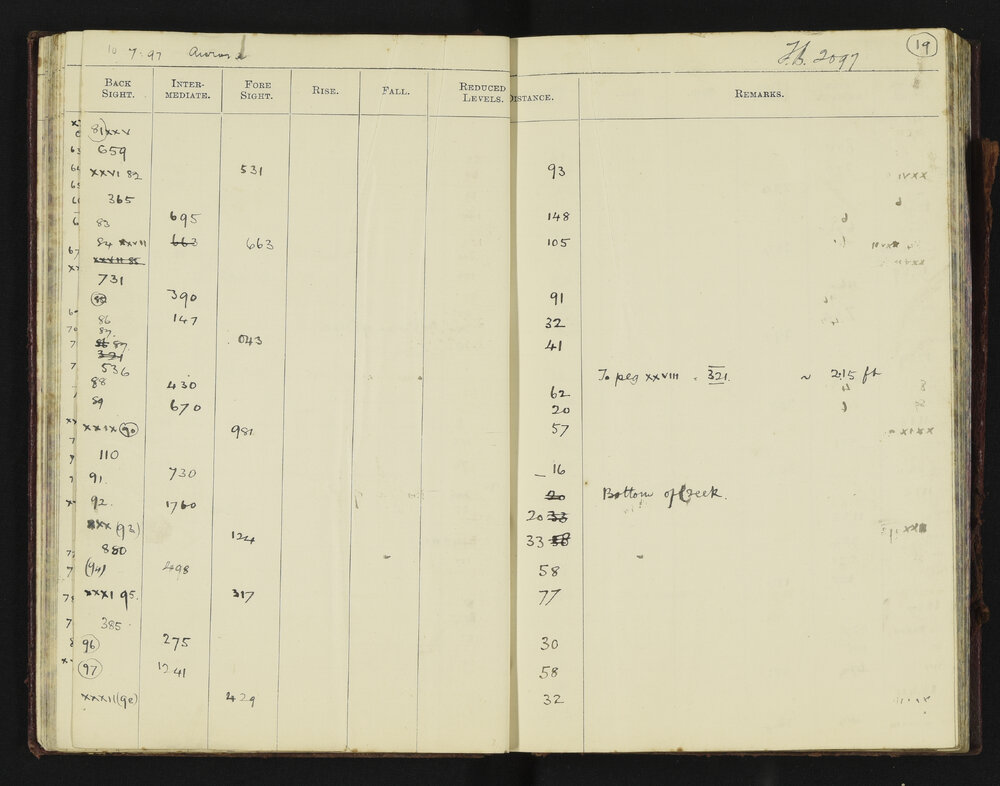 10 7.97
F.B. 2097 19
BACK SIGHT. INTER-MEDIATE. FORE SIGHT. RISE. FALL. REDUCED LEVELS. DISTANCE. REMARKS.
81 XXV
659
XXVI 82 531 93
365
83 695 148
84 XXVII 663 663 105
XXVII 85
731
85 390 91
86 147 32
87.
87 043 41
321
536
To peg XXVIII = 321. ~ 215 ft
88 430 62
89 670 20
XXIX 90 981 57
110
91. 730 16
92. 1760 20 Bottom of Creek.
20 33
XXX (93) 124 33 58
880
(94) 498 58
XXXI 95. 317 77
385
96 275 30
97 1241 58
XXXII (98) 429 32